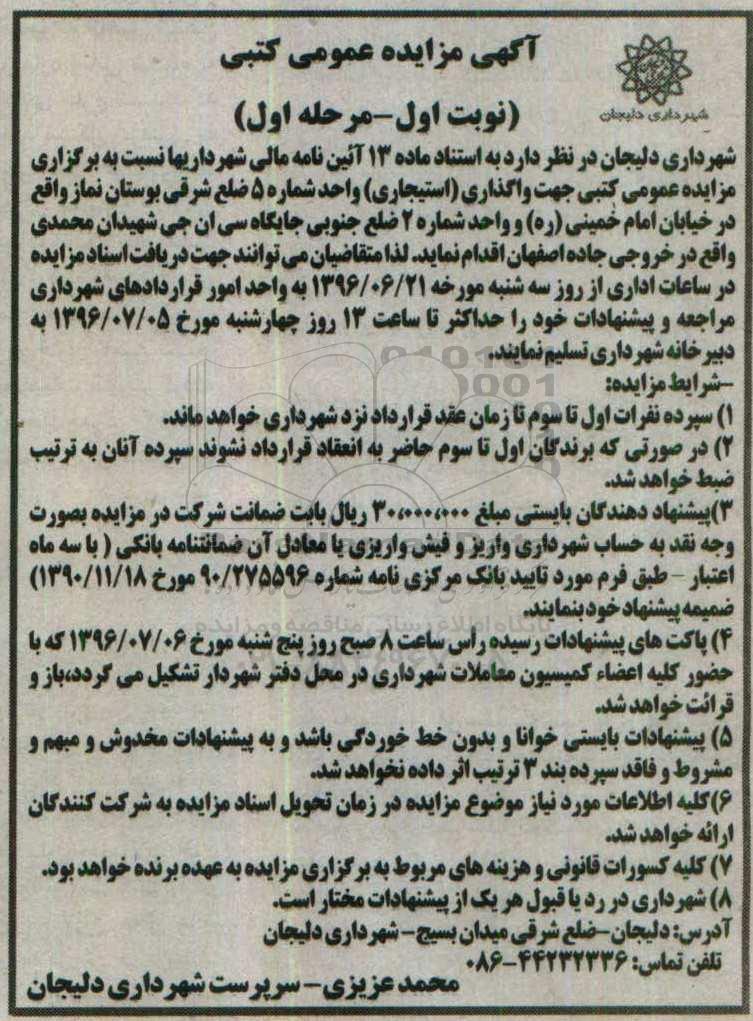 آگهی مزایده عمومی کتبی
شهرداری دلیجان
(نوبت اول-مرحله اول)
شهرداری دلیجان در نظر دارد به استناد ماده ۱۳ آئین نامه مالی شهرداریها نسبت به برگزاری
مزایده عمومی کتبی جهت واگذاری (استیجاری) واحد شماره ۵ ضلع شرقی بوستان نماز واقع
در خیابان امام خمینی (ره) و واحد شماره ۲ ضلع جنوبی جایگاه سی ان جی شهیدان محمدی
واقع در خروجی جاده اصفهان اقدام نماید. لذا متقاضیان می توانند جهت دریافت اسناد مزایده
در ساعات اداری از روز سه شنبه مورخه ۱۳۹۶/۰۶/۲۱ به واحد امور قراردادهای شهرداری
مراجعه و پیشنهادات خود را حداکثر تا ساعت ۱۳ روز چهارشنبه مورخ ۱۳۹۶/۰۷/۰۵ به
دبیرخانه شهرداری تسلیم نمایند.
-شرایط مزایده:
۱) سپرده نفرات اول تا سوم تا زمان عقد قرارداد نزد شهرداری خواهد ماند.
۲) در صورتی که برندگان اول تا سوم حاضر به انعقاد قرارداد نشوند سپرده آنان به ترتیب
ضبط خواهد شد.
۳)پیشنهاد دهندگان بایستی مبلغ ۳۰،۰۰۰،۰۰۰ ریال بابت ضمانت شرکت در مزایده بصورت
وجه نقد به حساب شهرداری واریز و فیش واریزی یا معادل آن ضمانتنامه بانکی ( با سه ماه
اعتبار - طبق فرم مورد تایید بانک مرکزی نامه شماره ۹۰/۲۷۵۵۹۶ مورخ ۱۳۹۰/۱۱/۱۸)
ضمیمه پیشنهاد خود بنمایند.
۴) پاکت های پیشنهادات رسیده رأس ساعت ۸ صبح روز پنج شنبه مورخ ۱۳۹۶/۰۷/۰۶ که با
حضور کلیه اعضاء کمیسیون معاملات شهرداری در محل دفتر شهردار تشکیل می گردد،باز و
قرائت خواهد شد.
۵) پیشنهادات بایستی خوانا و بدون خط خوردگی باشد و به پیشنهادات مخدوش و مبهم و
مشروط و فاقد سپرده بند ۳ ترتیب اثر داده نخواهد شد.
۶)کلیه اطلاعات مورد نیاز موضوع مزایده در زمان تحویل اسناد مزایده به شرکت کنندگان
ارائه خواهد شد.
۷) کلیه کسورات قانونی و هزینه های مربوط به برگزاری مزایده به عهده برنده خواهد بود.
۸) شهرداری در رد یا قبول هر یک از پیشنهادات مختار است.
آدرس: دلیجان-ضلع شرقی میدان بسیج- شهرداری دلیجان
تلفن تماس: ۴۴۲۳۲۳۳۶-۰۸۶
محمد عزیزی- سرپرست شهرداری دلیجان